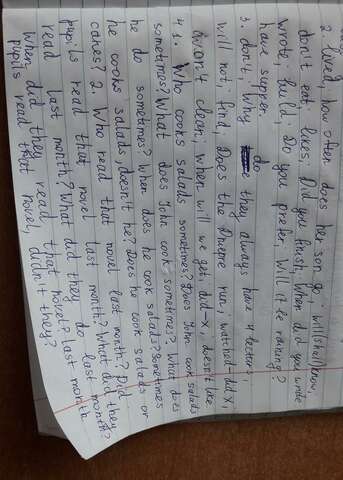 2 lived, how often does her son go, will shall know,
don't eat, likes, Did you finish, When did you write
wrote, build, Do you prefer, Will it be raining?
have supper.
3. don't, Why do they always have a lecture,
will not, find, Does the Dnipre run, watched did x,
(won't clean, when will we get, did x, doesn't like
4 1. Who cooks salads sometimes? Does John cook salads
sometimes? What does John cook sometimes? What does
he do sometimes? When does he cook salads? Sometimes
he cooks salads, doesn't he? Does he cook salads or
cakes? 2 Who read that novel last month? Did
pupils read that novel last month? What did they
read last month? What did they do last month?
When did they read that novel? Last month
pupils read that novel, didn't they?